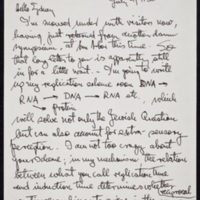 Hello Sydney
I'm moused under with visitors now,
having just returned from another damn
symposium, at Ann Arbor this time. So
that long letter to you is apparently still
in for a little wait. I'm going to write
up my replication scheme soon RNA →
RNA → DNA → RNA etc., which
→ protein
will solve not only the Jewish Question
but can also account for extra-sensory
perception. I am not too crazy about
your scheme; in my mechanism the relation
between what you call replication time
and induction time determines whether
reciprocal